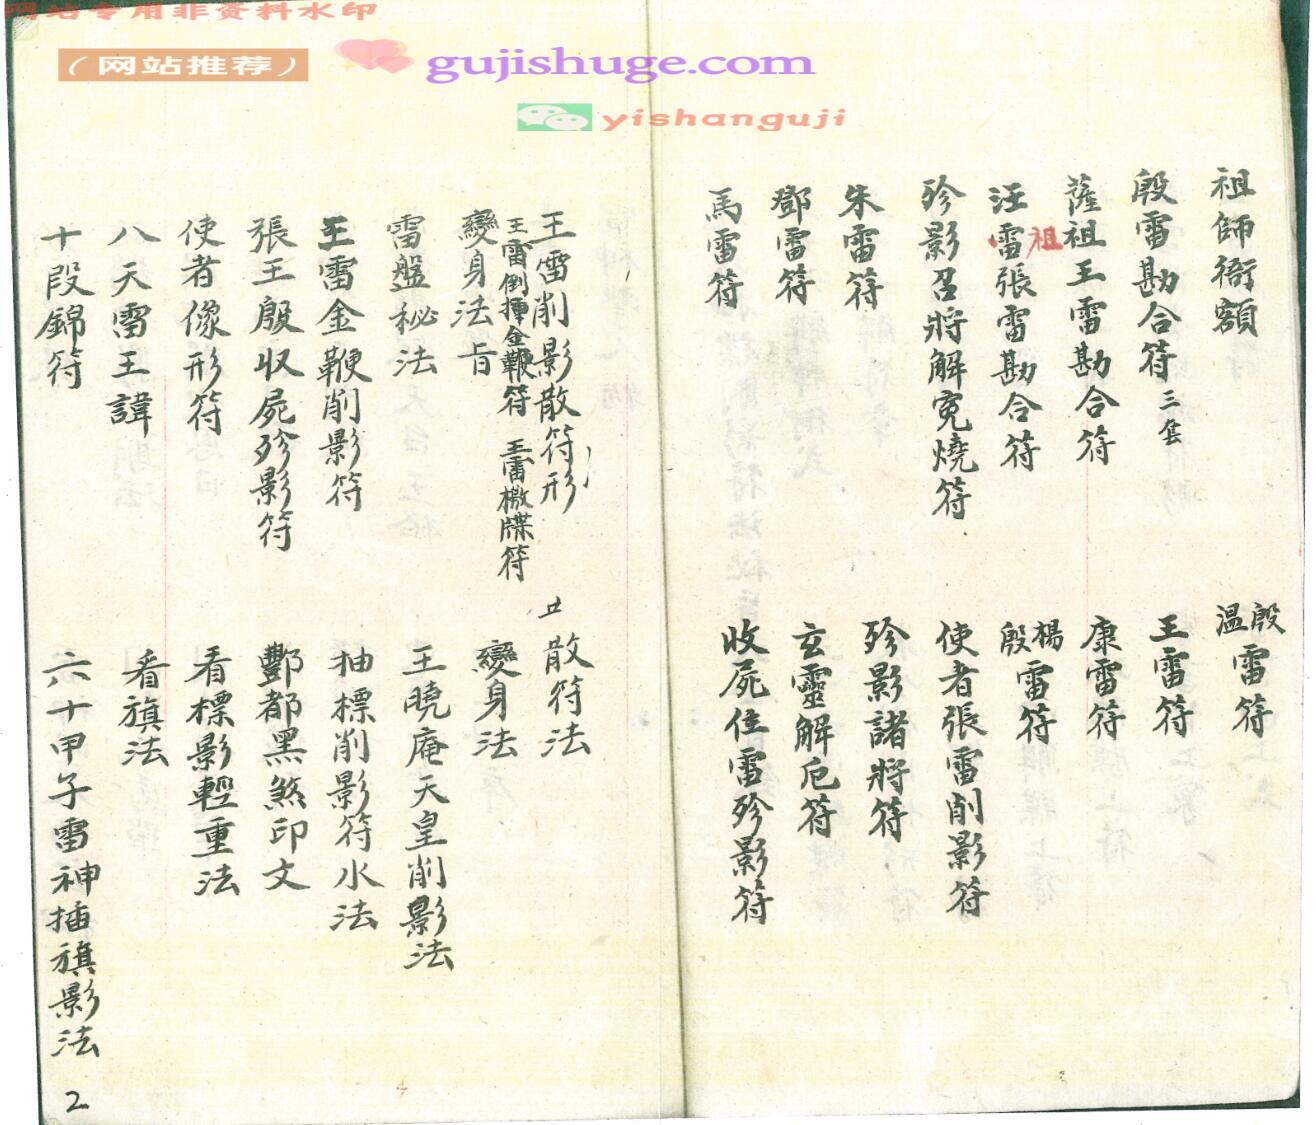 网站专用非资料水印
（网站推荐）
gujishuge.com
yishanguji
祖師衙額
殷溫雷符
殷雷勘合符三套
王雷符
薩祖王雷勘合符
康雷符
汪祖雷張雷勘合符
楊殷雷符
殄影召將解冤燒符
使者張雷削影符
朱雷符
殄影諸將符
鄧雷符
玄靈解厄符
馬雷符
收屍住雷殄影符
王雷削影散符形
散符法
王雷倒揮金鞭符 王雷檄牒符
變身法旨
變身法
雷盤秘法
王曉庵天皇削影法
王雷金鞭削影符
抽標削影符水法
張王殷収屍殄影符
酆都黑煞印文
使者像形符
看標影輕重法
八天雷王諱
看旗法
十段錦符
六十甲子雷神插旗影法
2